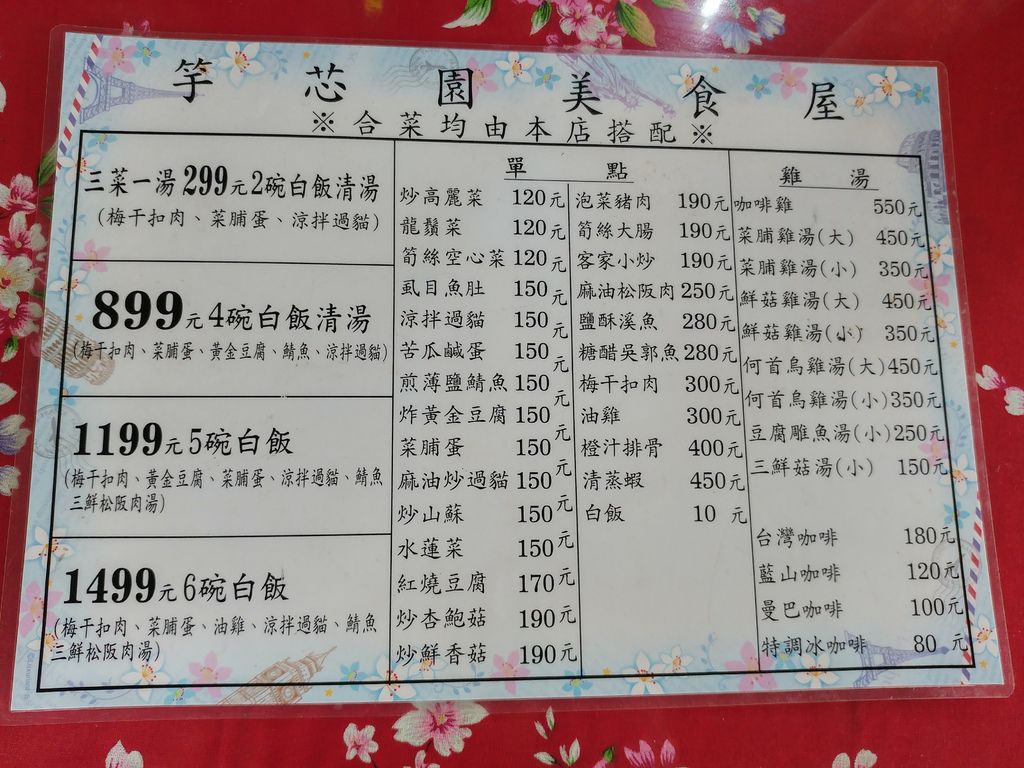 竽芯園美食屋
※合菜均由本店搭配※
三菜一湯299元2碗白飯清湯
(梅干扣肉、菜脯蛋、涼拌過貓)
899元4碗白飯清湯
(梅干扣肉、菜脯蛋、黃金豆腐、鯖魚、涼拌過貓)
1199元5碗白飯
(梅干扣肉、黃金豆腐、菜脯蛋、涼拌過貓、鯖魚
三鮮松阪肉湯)
1499元6碗白飯
(梅干扣肉、菜脯蛋、油雞、涼拌過貓、鯖魚
三鮮松阪肉湯)
單點
炒高麗菜 120元
龍鬚菜 120元
筍絲空心菜 120元
虱目魚肚 150元
涼拌過貓 150元
苦瓜鹹蛋 150元
煎薄鹽鯖魚 150元
炸黃金豆腐 150元
菜脯蛋 150元
麻油炒過貓 150元
炒山蘇 150元
水蓮菜 150元
紅燒豆腐 170元
炒杏鮑菇 190元
炒鮮香菇 190元
泡菜豬肉 190元
筍絲大腸 190元
客家小炒 190元
麻油松阪肉 250元
鹽酥溪魚 280元
糖醋吳郭魚 280元
梅干扣肉 300元
油雞 300元
橙汁排骨 400元
清蒸蝦 450元
白飯 10元
雞湯
咖啡雞 550元
菜脯雞湯(大) 450元
菜脯雞湯(小) 350元
鮮菇雞湯(大) 450元
鮮菇雞湯(小) 350元
何首烏雞湯(大) 450元
何首烏雞湯(小) 350元
豆腐雕魚湯(小) 250元
三鮮菇湯(小) 150元
台灣咖啡 180元
藍山咖啡 120元
曼巴咖啡 100元
特調冰咖啡 80元